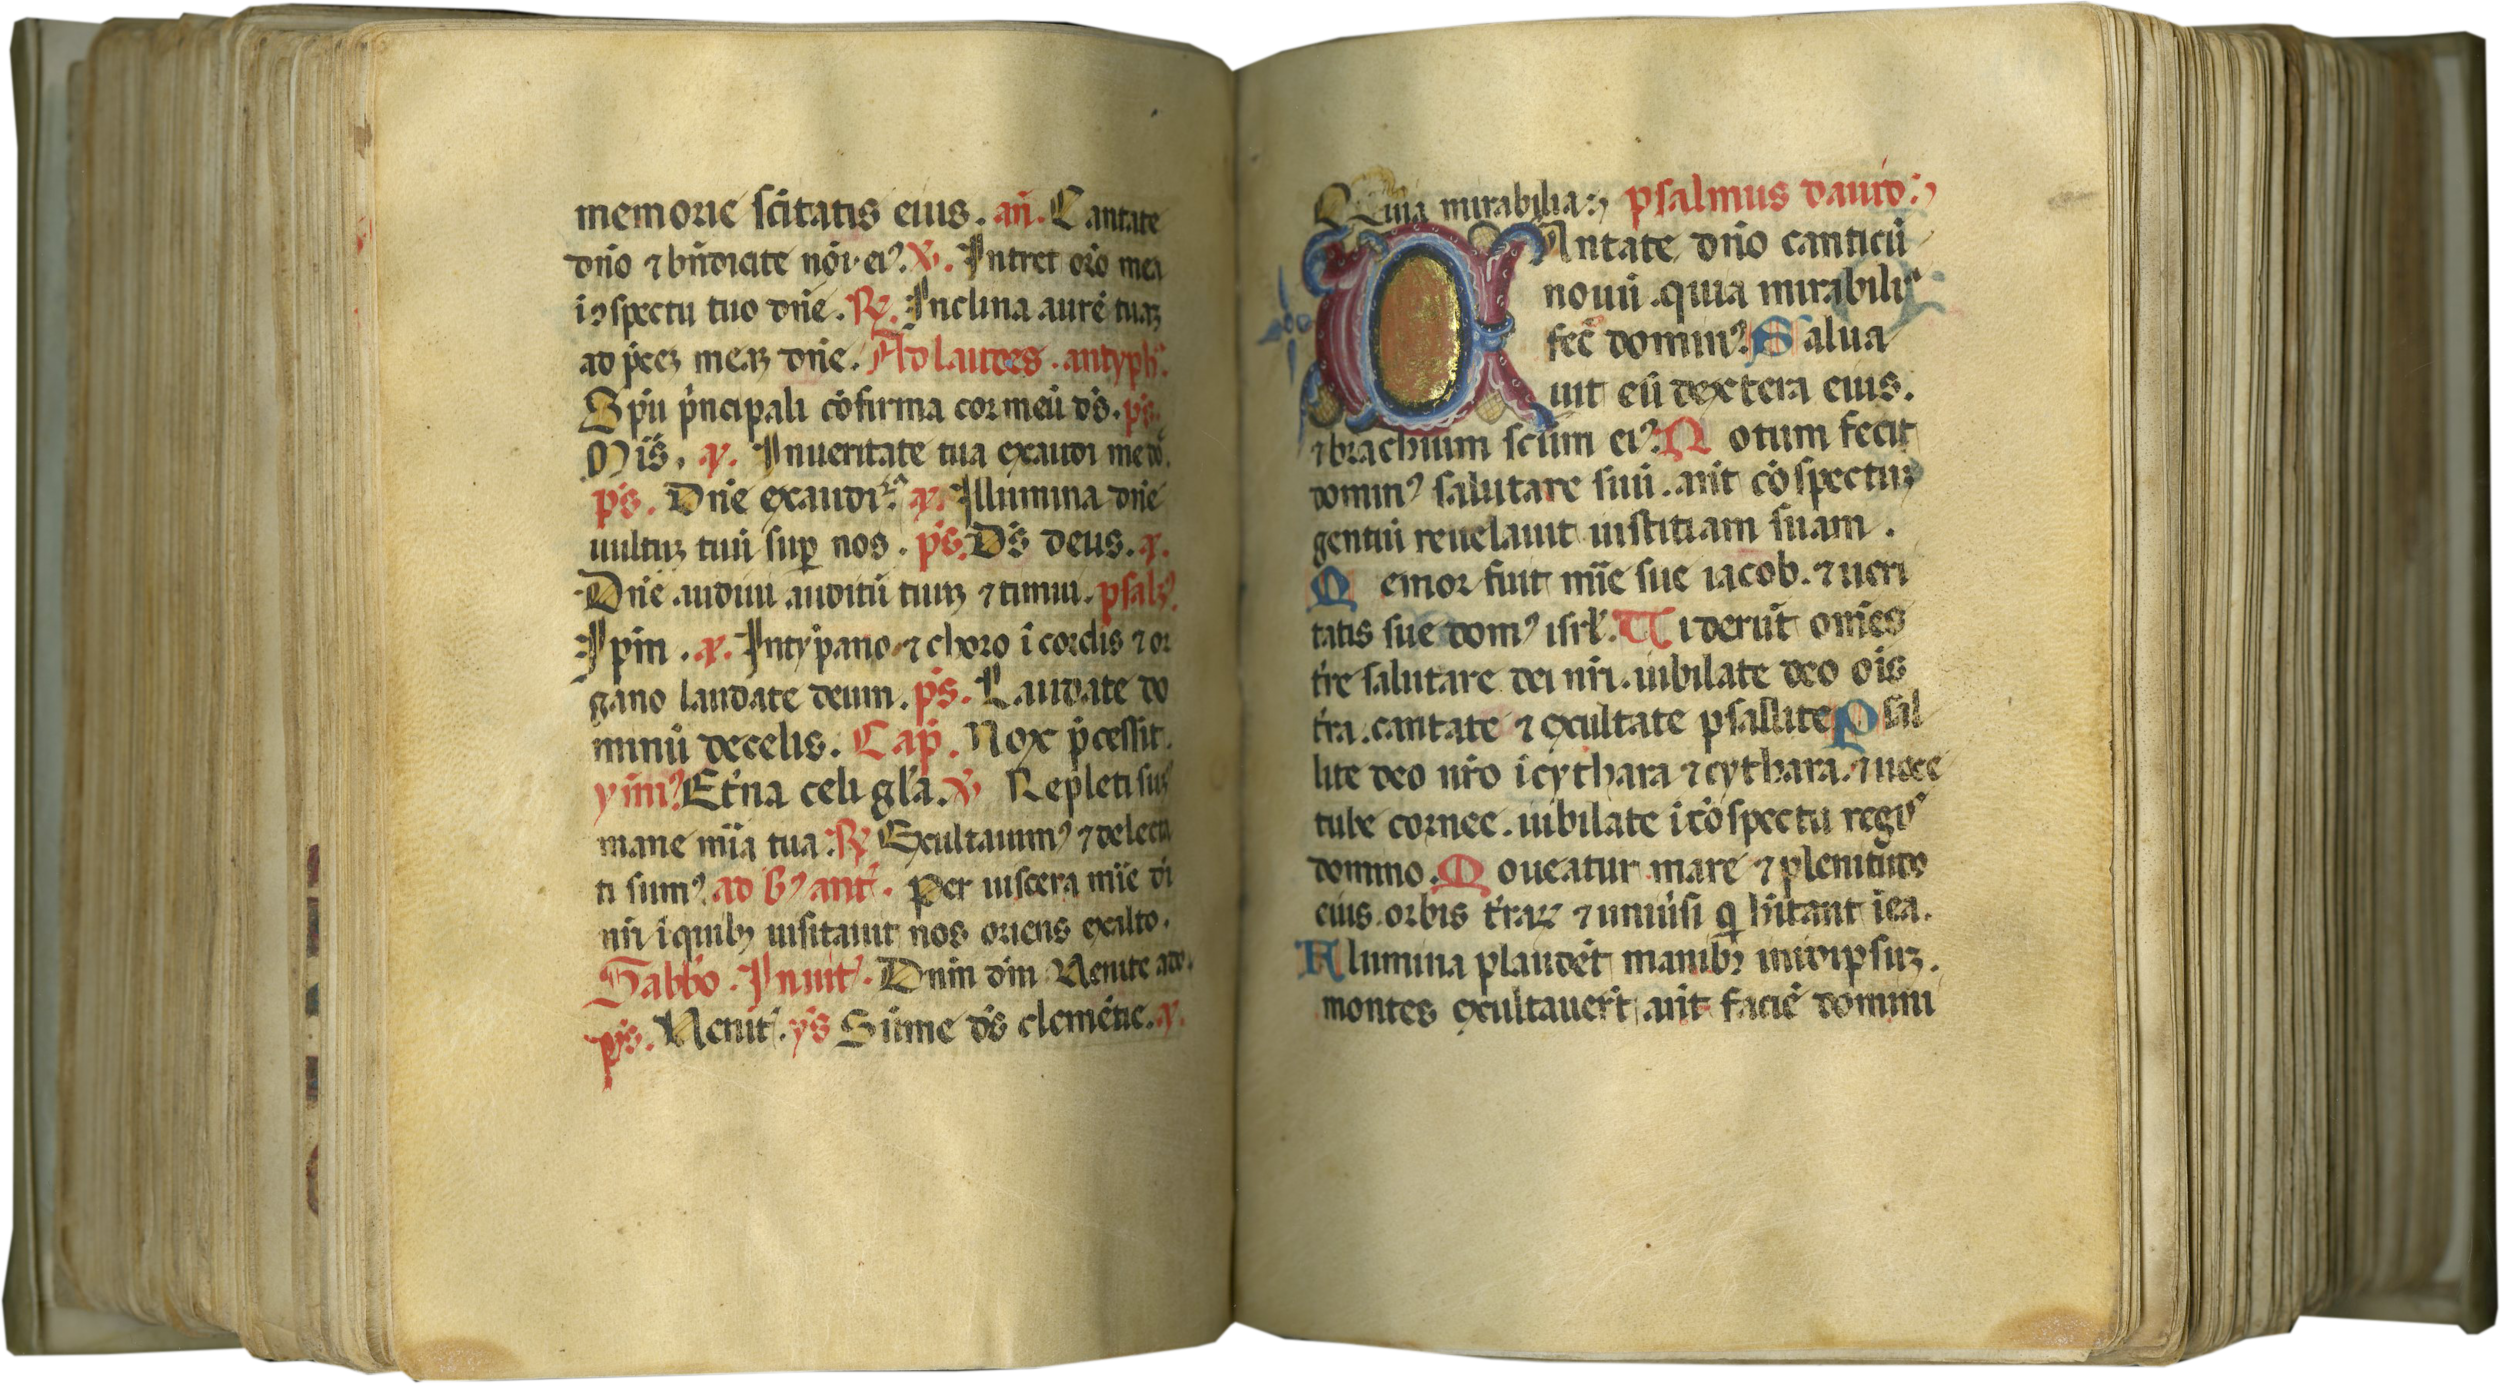 memorie scitatis eius. an. Cantate
dno ⁊ bndicite nōi ei⁹. ℣. Intret oro mea
i ↄspectu tuo dne. ℟. Inclina aurē tuaꝫ
ad pceꝫ meaꝫ dne. Ad laudes. antyph.
Spu pncipali cōfirma cor meū ds. ps.
Mis. ā. In ueritate tua exaudi me dō.
ps. Dne exaudi. ā. Illumina dne
uultuꝫ tuū suꝑ nos. ps. Ds deus. ā.
Dne audiui auditū tuuꝫ ⁊ timui. psalꝫ.
Ipm. ā. In typano ⁊ choro i cordis ⁊ or
gano laudate deum. ps. Laudate do
minū de celis. Cap. Nox pcessit.
ymn⁹. Etna celi gla. ℣ Repleti sum⁹
mane mia tua. ℟ Exultauim⁹ ⁊ delecta
ti sum⁹. ad b⁹ ant. Per uiscera mie di
nri i quibꝫ uisitauit nos oriens exalto.
Sabbo. Inuit. Dnm dm Uenite ado.
ps. Uenit. ys Sūme ds clemētie. ā.
Quia mirabilia. psalmus dauid.
CAntate dno canticū
nouū. quia mirabilia
fec domin⁹. Salua
uit eū dextera eius.
⁊ brachium scūm ei⁹. Notum fecit
domin⁹ salutare suū. ant cōspectuꝫ
gentiū reuelauit iustitiam suam.
Memor fuit mie sue iacob. ⁊ ueri
tatis sue dom⁹ isrl. Uiderūt omēs
tre salutare dei nri. iubilate deo ois
tra. cantate ⁊ exultate psallite. Psal
lite deo nro i cythara ⁊ cythara. ⁊ uoce
tube cornee. iubilate i cōspectu regis
domino. Moueatur mare ⁊ plenitudo
eius. orbis traꝝ ⁊ uniūsi q hitant i ea.
Flumina plaudēt manibꝫ in idipsuꝫ.
montes exultauerūt ant faciē domini